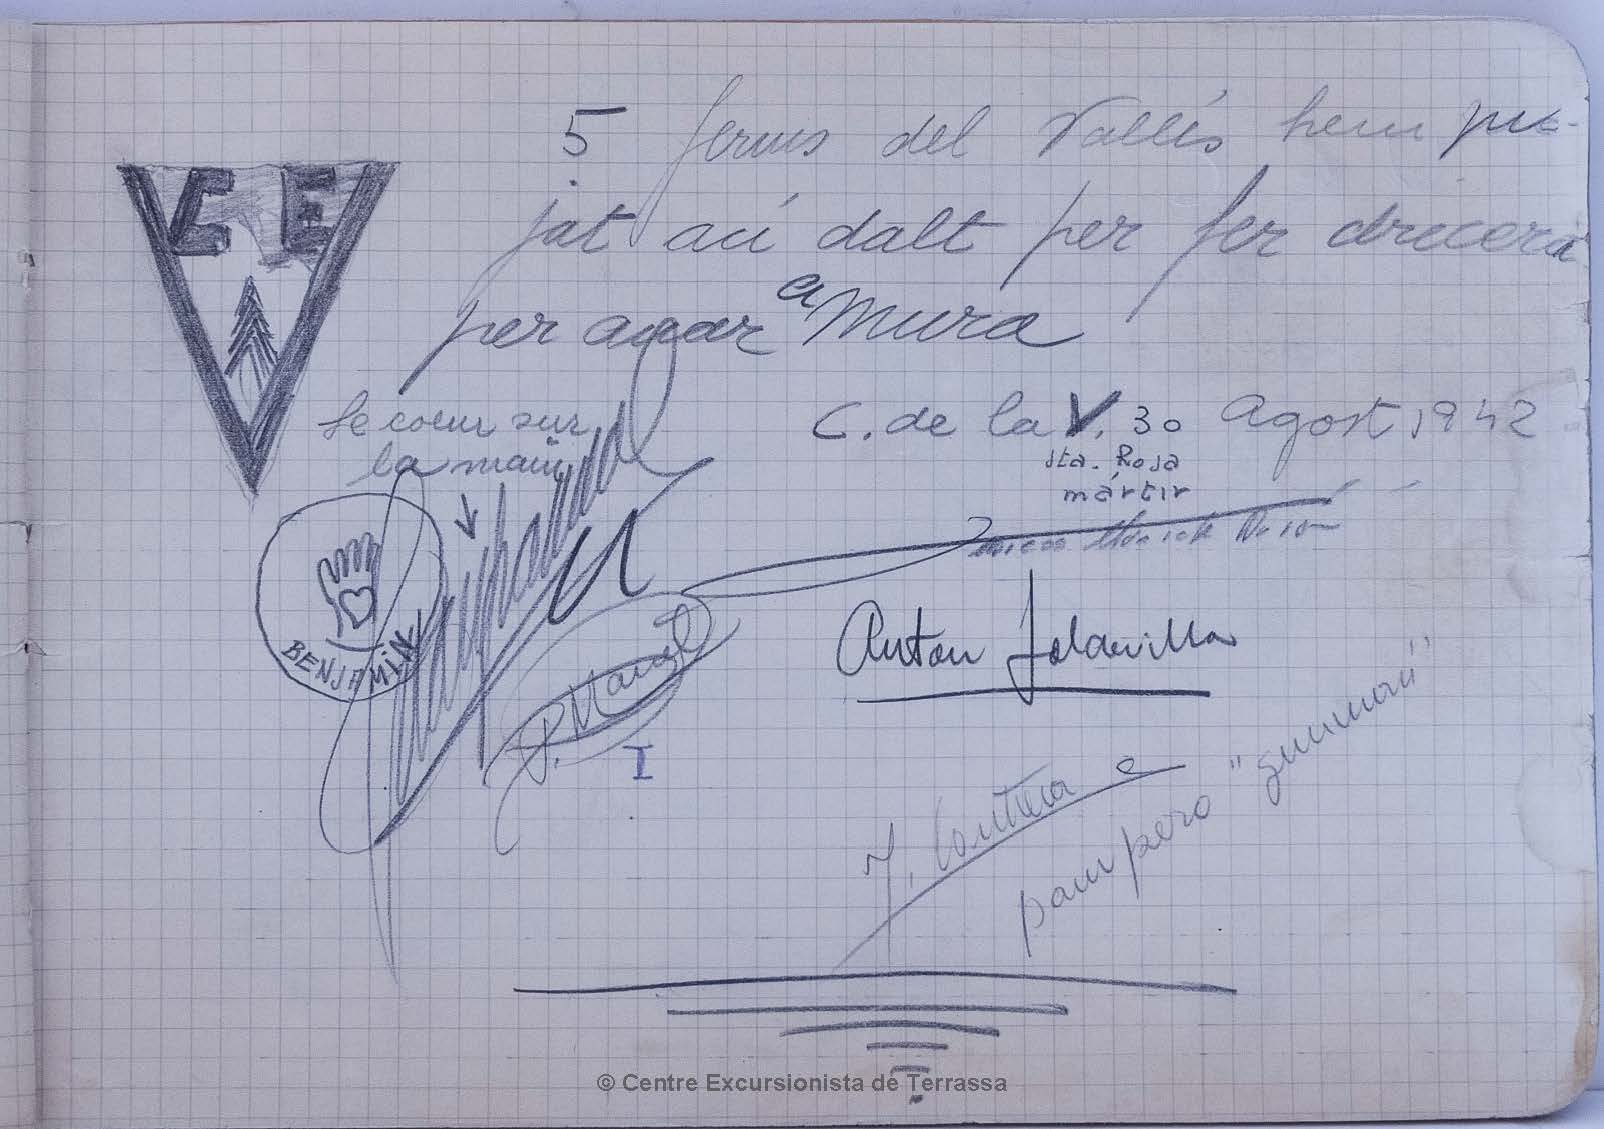 C E
5 ferms del Vallés hem pu-
jat aci dalt per fer drecera
per anar a Mura
Le coeur sur
la main
C. de la V. 30 Agost 1942
Sta. Rosa
mártir
BENJAMIN
P. Marcet
I
Anton
J.
pampero
© Centre Excursionista de Terrassa